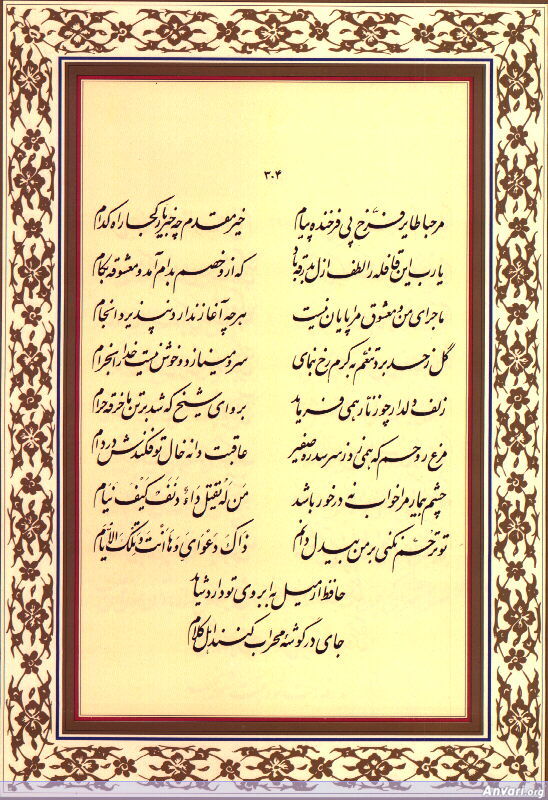 ۳۰۴
مرحبا طایر فرّخ پی فرخنده پیام خیر مقدم چه خبر یار کجا راه کدام
یارب این قافله را لطف ازل بدرقه باد که ازو خصم بدام آمد و معشوقه بکام
ماجرای من و معشوق مرا پایان نیست هرچه آغاز ندارد نپذیرد انجام
گل ز حد برد تنعّم بکرم رخ بنمای سرو مینازد و خوش نیست خدا را بخرام
زلف دلدار چو زنّار همی فرماید برو ای شیخ که شد بر تن ما خرقه حرام
مرغ روحم که همی زد ز سر سدره صفیر عاقبت دانه خال تو فکندش در دام
چشم بیمار مرا خواب نه درخور باشد مَن لَهُ یَقتُل داءٌ دَنَفٌ کَیفَ یَنام
تو ترحّم نکنی بر من بیدل دانم ذاکَ دَعوایَ وَ ها اَنتَ وَ تِلکَ الاَیّام
حافظ ار میل به ابروی تو دارد شاید
جای در گوشهٔ محراب کنند اهل کلام
Anvari.org